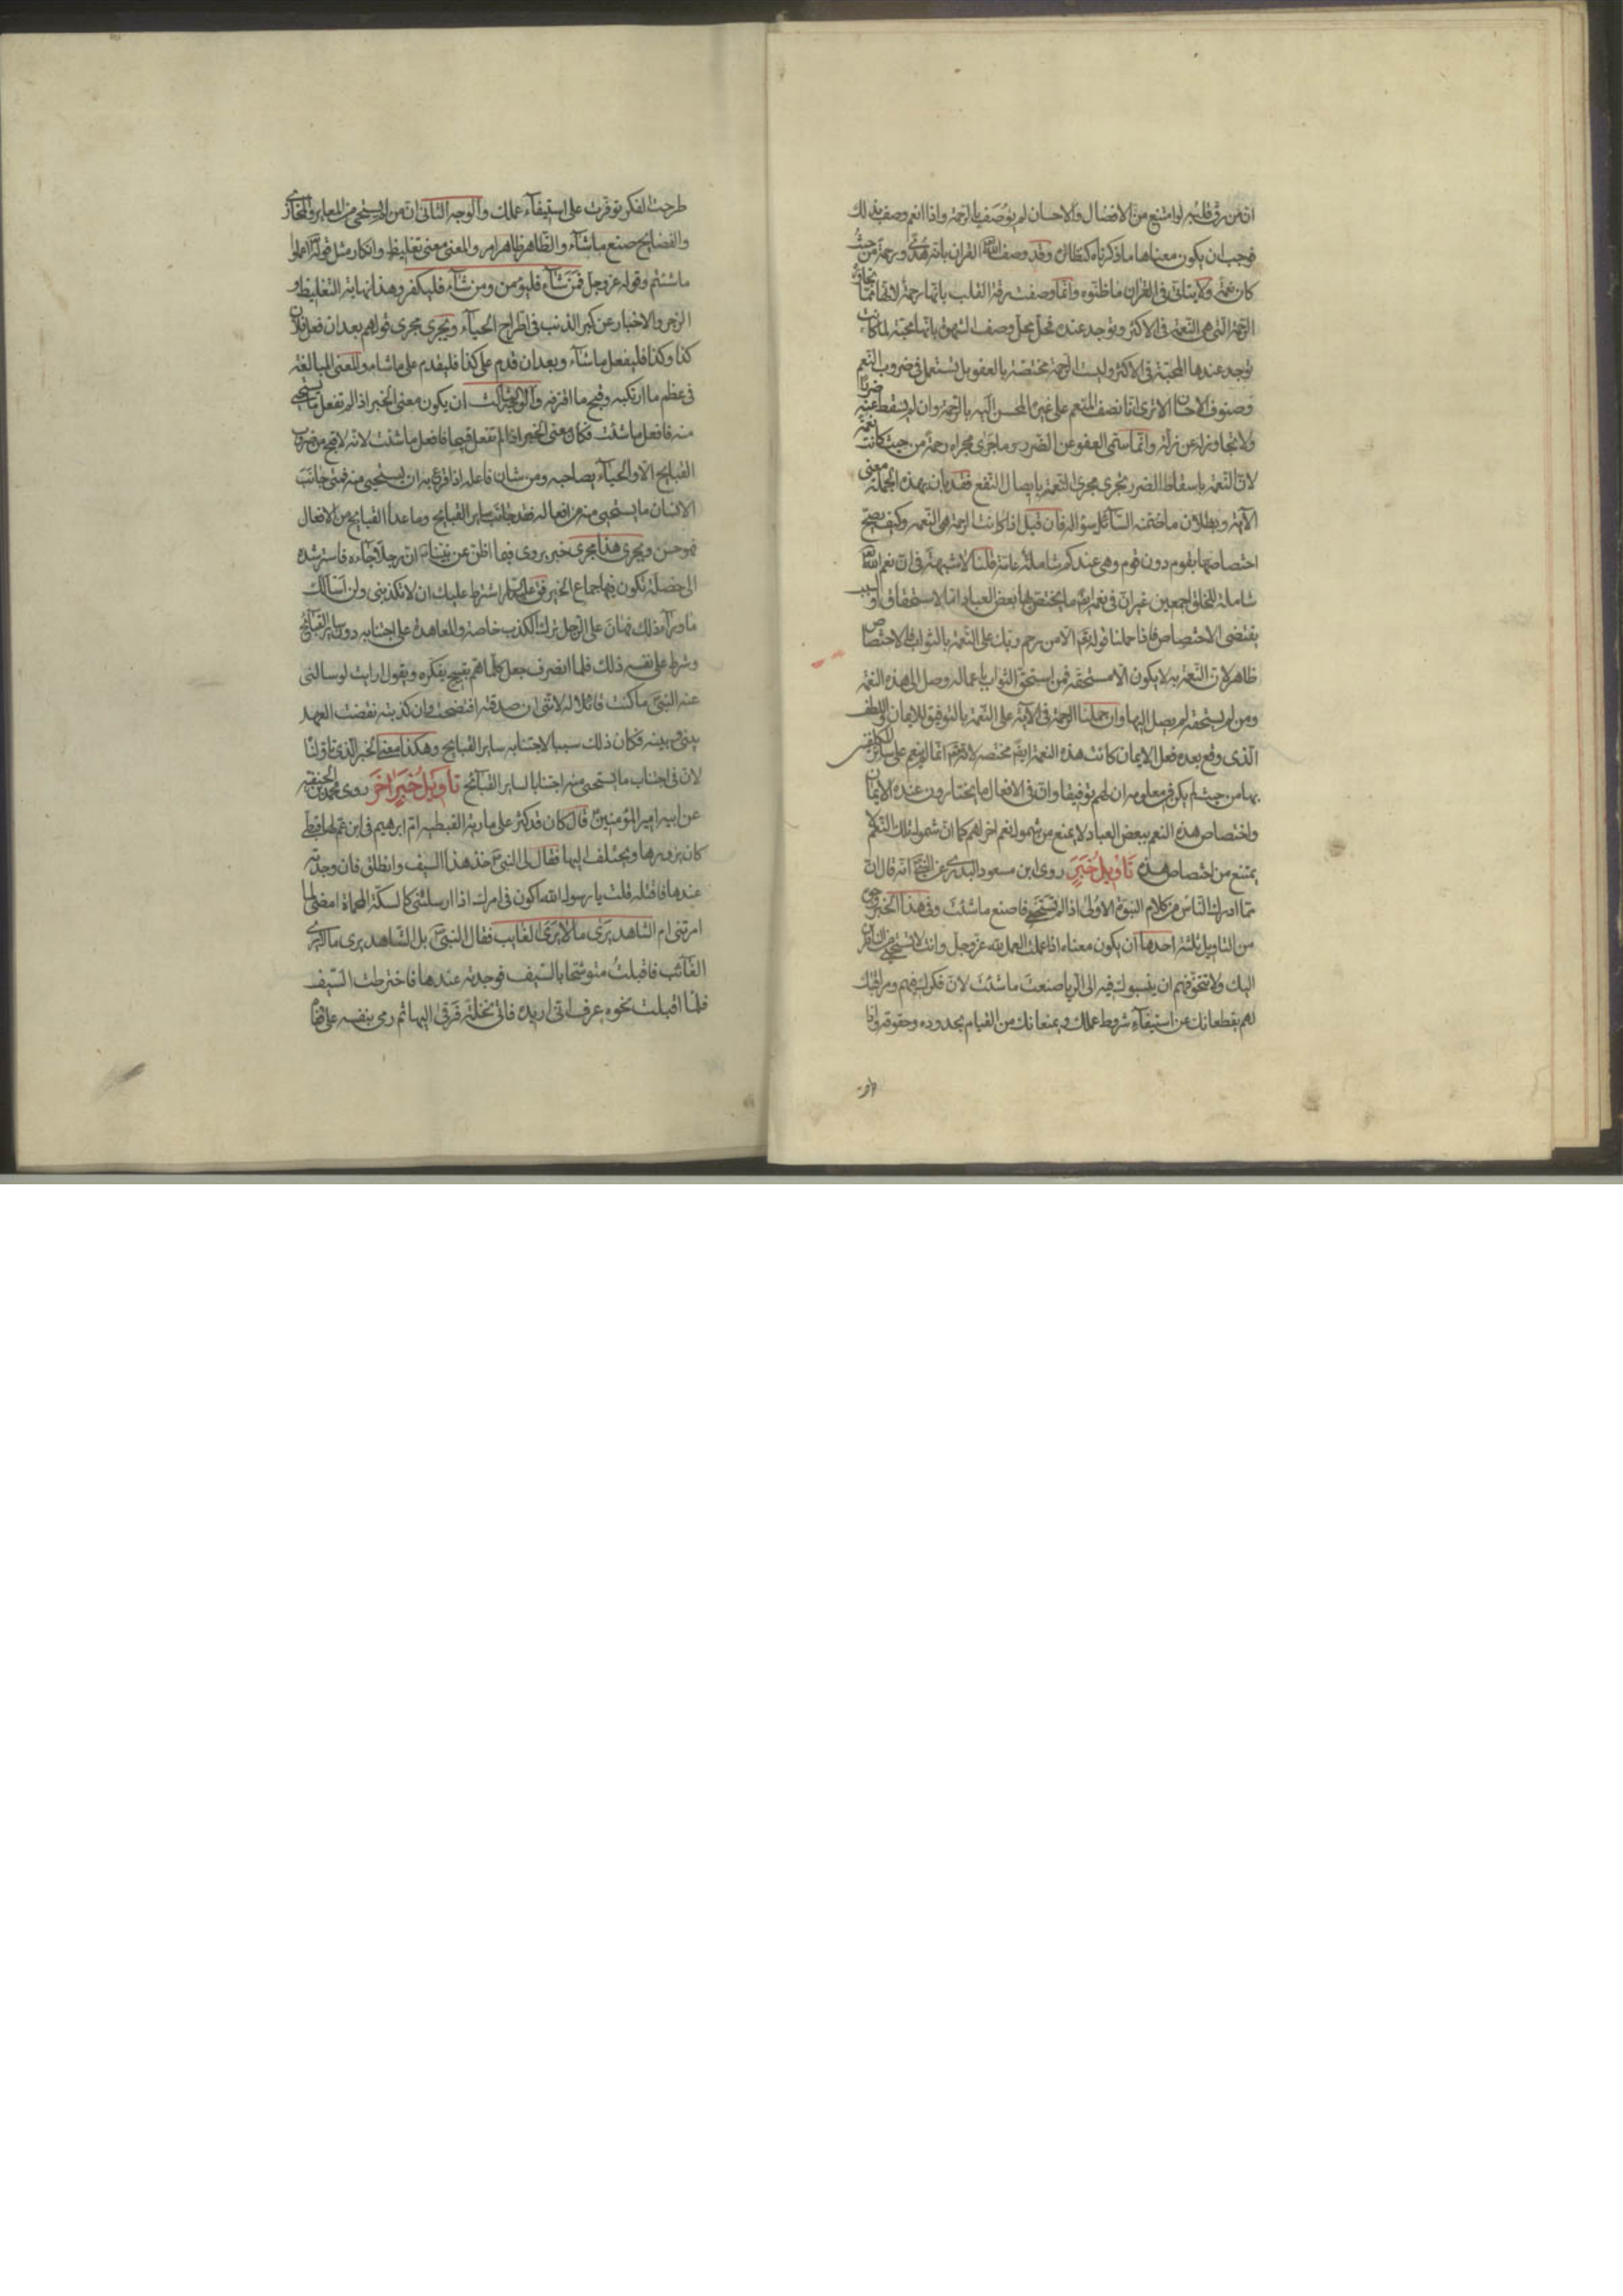 انّ من رقّ قلبه لو امتنع من الافضال والاحسان لم يوصف بالرحمة واذا انعم وصف بذلك
فوجب ان يكون معناها ما ذكرناه كنظائره وقد وصف الله القران بانه هدى ورحمة من حيث
كان نعمة ولا يتاتى في القران ما ظنّوه وانّما وصفت رقة القلب بانها رحمة لانها مما تجاوره
الرحمة التى هى النعمة في الاكثر ويوجد عنده فحلّ محل وصف الشهوة بانها محبّة لما كانت
يوجد عندها المحبّة في الاكثر وليست الرحمة مختصّة بالعفو بل تستعمل في ضروب النعم
وصنوف الاحسان الا ترى انا نصف المنعم على غيره المحسن اليه بالرحمة وان لم يسقط عنه ضررا
ولا تجاوز له عن زلّة وانّما سمّى العفو عن الضرر وما جرى مجراه رحمة من حيث كانت نعمة
لانّ النعمة باسقاط الضرر تجرى مجرى النعمة بايصال النفع فقد بان بهذه الجملة معنى
الآية وبطلان ما ضمّنه السّائل سؤاله فان قيل اذا كانت الرحمة هى النعمه وكيف يصح
اختصاصها بقوم دون قوم وهى عندكم شاملة عامّة قلنا لا شبهة في انّ نعم الله
شاملة للخلق اجمعين غير انّ في نعمه ما يختصّ بها بعض العباد امّا لاستحقاق او لسبب
يقتضى الاختصاص فاذا حملنا قوله تعم الّا من رحم ربك على النّعمة بالثواب فالاختصاص
ظاهر لانّ النّعمة به لا يكون الا مستحقه فمن استحقّ الثواب باعماله وصل الى هذه النعمة
ومن لم يستحقه لم يصل اليها وان حملنا الرحمة في الآية على النّعمة بالتوفيق للايمان واللطف
الّذى وقع بعده فعل الايمان كانت هذه النعمة ايضا مختصه لانه تعم انّما لم ينعم على سائر المكلفين
بها من حيث لم يكن في معلومه ان لهم توفيقا وانّ في الافعال ما يختارون عنده الايمان
واختصاص هذه النعم ببعض العباد لا يمنع من شمول نعم اخر لهم كما انّ شمول تلك النعم لا
يمتنع من اختصاص هذه تَأويلُ خَبَرٍ روى ابن مسعود البدرى عن النبى انه قال ان
مما ادرك النّاس من كلام النبوة الاولى اذا لم تستحى فاصنع ماشئت وفي هذا الخبر وجوه
من التاويل ثلثة احدها ان يكون معناه اذا عملت العمل لله عزّ وجلّ وانت لا تستحيى من الناظرين
اليك ولا تتخوّفهم ان ينسبوك فيه الى الريا صنعت ماشئت لانّ فكرك فيهم ومراقبتك
لهم يقطعانك عن استيفاء شروط عملك ويمنعانك من القيام بحدوده وحقوقه واذا
طرحت الفكر توفّرت على استيفاء عملك والوجه الثانى انّ من لم يستحى من المعاير والمخازى
والفضايح صنع ماشاء والظاهر ظاهر امر والمعنى معنى تغليظ وانكار مثل قوله اعملوا
ماشئتم وقوله عزّ وجلّ فمن شاء فليؤمن ومن شاء فليكفر وهذا نهاية التغليظ و
الزجر والاخبار عن كبر الذنب في اطراح الحياء ويجرى مجرى قولهم بعد ان فعل فلان
كذا وكذا فليفعل ماشاء وبعد ان قدم على كذا فليقدم على ماشاء والمعنى المبالغة
في عظم ما ارتكبه وقبح ما اقترفه والوجه الثالث ان يكون معنى الخبر اذا لم تفعل ما تستحى
منه فافعل ماشئت فكان معنى الخبر اذا لم تفعل قبيحا فافعل ماشئت لانّه لا قبح من ضروب
القبايح الا والحياء يصاحبه ومن شان فاعله اذا قرع به ان يستحيى منه فمتى جانب
الانسان ما يستحيى منه من افعاله فقد جانب ساير القبايح وما عدا القبايح من الافعال
فهو حسن ويجرى هذا مجرى خبر يروى فيما اظن عن نبينا انّ رجلا جاءه فاسترشده
الى خصلة تكون فيها جماع الخير فقال اشترط عليك ان لا تكذبنى ولن اسالك
ما وراء ذلك فهان على الرّجل ترك الكذب خاصة والمعاهدة على اجتنابه دون ساير القبائح
وشرط على نفسه ذلك فلما انصرف جعل كلّما همّ بقبيح يفكره ويقول ارايت لو سالنى
عنه النبى ما كنت قائلا له لانّنى ان صدقته افتضحت وان كذبته نقضت العهد
بينى وبينه فكان ذلك سببا لاجتنابه ساير القبايح وهكذا معنى الخبر الذى تاولنا
لانّ في اجتناب ما يستحيى منه اجتنابا لساير القبائح تأويلُ خَبَرٍ اخَرَ روى محمد بن الحنفية
عن ابيه امير المؤمنين قال كان قد كثر على مارية القبطيه امّ ابرهيم في ابن عم لها قبطى
كان يزورها ويختلف اليها فقال لى النبى خذ هذا السيف وانطلق فان وجدته
عندها فاقتله قلت يا رسول الله اكون في امرك اذا ارسلتنى كالسكة المحماة امضى لما
امرتنى ام الشاهد يرى ما لا يرى الغايب فقال النبى بل الشاهد يرى ما لا يرى
الغائب فاقبلتُ متوشّحا بالسّيف فوجدته عندها فاخترطت السّيف
فلمّا اقبلت نحوه عرف انى اريده فاتى نخلة فرقى اليها ثم رمى بنفسه على قفاه